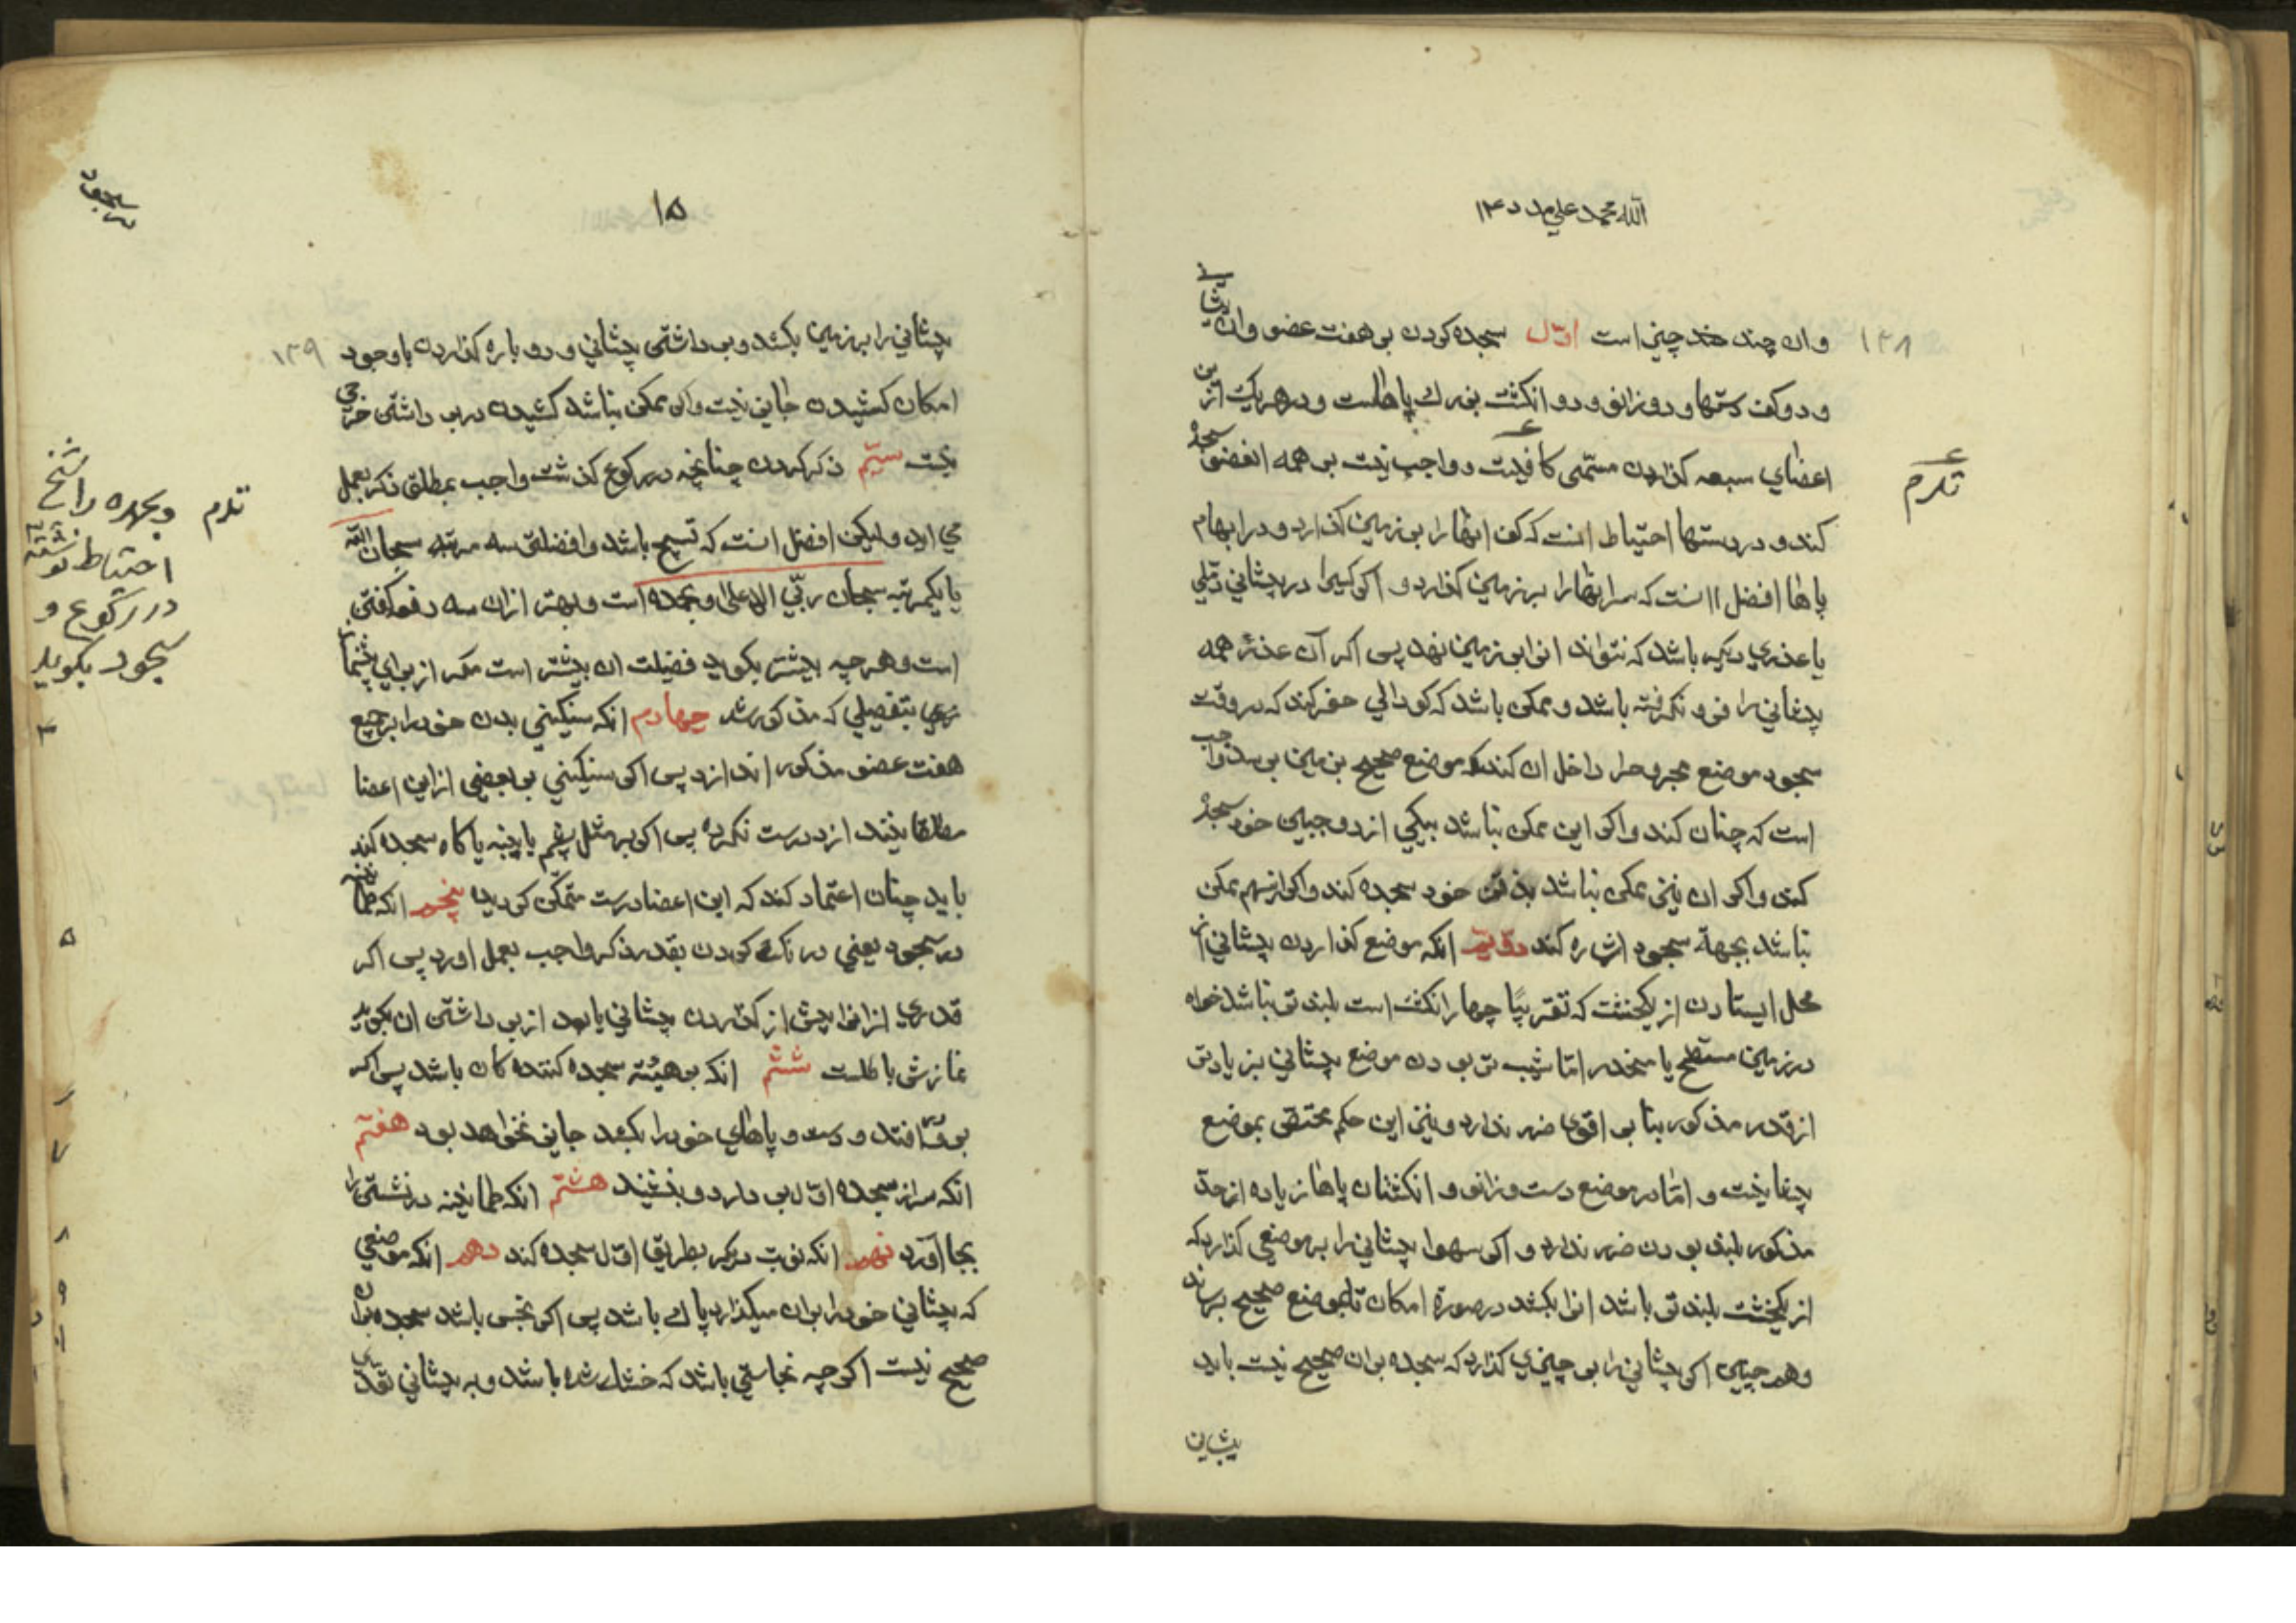 الله محمد علی مدد ۱۴
۱۳۸
وان چند چیز است اوّل سجده کردن بر هفت عضو وان پیشانی
و دو کف دستها و دو زانو و دو انکشت بزرك پاهاست و در هریك ازین
اعضای سبعه کذاردن مسمّی کافیست و واجب نیست بر همه انعضو سجده
کند و در دستها احتیاط انست که کف انها را بر زمین کذارد و در ابهام
پاها افضل انست که سر انها را بر زمین کذارد و اکر کسیرا در پیشانی دملی
یا عذری دیکر باشد که نتواند انرا بر زمین نهد پس اکر آن عذر همه
پیشانی را فرو نکرفته باشد و ممکن باشد که کودالی حفر کند که در وقت
سجود موضع مجروحرا داخل ان کند که موضع صحیح بزمین برسد واجب
است که چنان کند و اکر این ممکن نباشد بیکی از دو جبین خود سجده
کند و اکر ان نیز ممکن نباشد بذقن خود سجده کند و اکر انهم ممکن
نباشد بجهة سجود اشاره کند دویّم انکه موضع کذاردن پیشانی از
محل ایستادن از یکخشت که تقریبًا چهار انکشت است بلندتر نباشد خواه
در زمین مسطّح یا منحدر امّا شیب تر بودن موضع پیشانی بزیادتر
از قدر مذکور بنا بر اقوی ضرر ندارد و نیز این حکم مختصّ بموضع
پیشانیست و امّا در موضع دست و زانو و انکشتان پاها زیاده از حدّ
مذکور بلند بودن ضرر ندارد و اکر سهوا پیشانی را بر موضعی کذارد که
از یکخشت بلندتر باشد انرا بکشد در صورة امکان تا بموضع صحیح برساند
و همچنین اکر پیشانی را بر چیزی کذارد که سجده بران صحیح نیست باید
پیشانی
تکرم
۱۵
در سجود
۱۳۹
پیشانی را بر زمین بکشد و برداشتن پیشانی و دوباره کذاردن با وجود
امکان کشیدن جایز نیست و اکر ممکن نباشد کشیدن در برداشتن حرجی
نیست سیّم ذکر کردن چنانچه در رکوع کذشت واجب بمطلق ذکر بعمل
می اید و لیکن افضل انست که تسبیح باشد و افضلتر سه مرتبه سبحان الله
یا یکمرتبه سبحان ربّی الاعلی و بحمده است و بهتر ازان سه دفعه کفتن
است و هر چه بیشتر بکوید فضیلت ان بیشتر است مکر از برای پیشنماز
بتفصیلی که مذکور شد چهارم انکه سنکینی بدن خود را بر جمیع
هفت عضو مذکور اندازد پس اکر سنکینی بر بعضی ازاین اعضا
مطلقا نیندازد درست نکرده پس اکر بر مثل پشم یا پنبه یا کاه سجده کند
باید چنان اعتماد کند که این اعضا درست متمکّن کردید پنجم انکه طمانینه
در سجود یعنی درنك کردن بقدر ذکر واجب بعمل اورد پس اکر
قدری ازانرا پیش از کذاردن پیشانی یا بعد از برداشتن ان بکوید
نمازش باطلست ششم انکه بر هیئة سجده کننده کان باشد پس اکر
برو افتد و دست و پاهای خود را بکشد جایز نخواهد بود هفتم
انکه سر از سجده اوّل بردارد و بنشیند هشتم انکه طمانینه در نشستن را
بجا آورد نهم انکه نوبت دیکر بطریق اوّل سجده کند دهم انکه موضعی
که پیشانی خود را بران میکذارد پاك باشد پس اکر نجس باشد سجده بران
صحیح نیست اکر چه نجاستی باشد که خشك شده باشد و به پیشانی تعدّی
تکرم
وبحمده را شیخ
احتیاط نوشته
در رکوع و
سجود بکوید